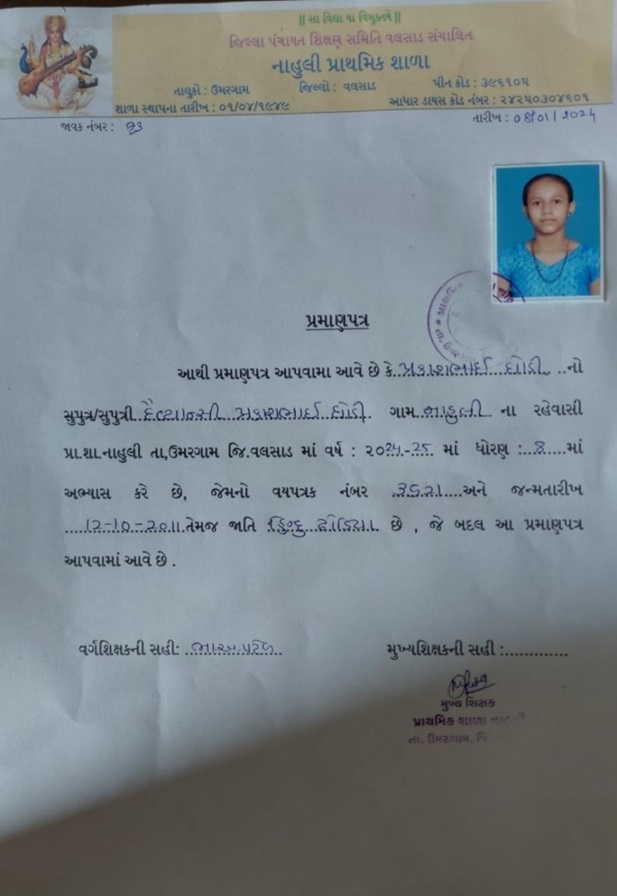 || સા વિદ્યા યા વિમુક્તયે ||
જિલ્લા પંચાયત શિક્ષણ સમિતિ વલસાડ સંચાલિત
નાહુલી પ્રાથમિક શાળા
તાલુકો : ઉમરગામ જિલ્લો : વલસાડ પીન કોડ : ૩૯૬૧૦૫
શાળા સ્થાપના તારીખ : ૦૧/૦૪/૧૯૪૯ આધાર ડાયસ કોડ નંબર : ૨૪૨૫૦૩૦૪૬૦૧
જાવક નંબર : 93 તારીખ : /01/2024
પ્રમાણપત્ર
આથી પ્રમાણપત્ર આપવામા આવે છે કે..પ્રકાશભાઈ ધોડી...નો
સુપુત્ર/સુપુત્રી દૈવ્યાન્સી પ્રકાશભાઈ ધોડી. ગામ નાહુલી ના રહેવાસી
પ્રા.શા.નાહુલી તા,ઉમરગામ જિ.વલસાડ માં વર્ષ : ૨૦૨૪-૨૫ માં ધોરણ :..૪....માં
અભ્યાસ કરે છે, જેમનો વયપત્રક નંબર ....અને જન્મતારીખ
....12-10-૨૦૧૧ તેમજ જાતિ હિન્દુ ધોડિયા છે , જે બદલ આ પ્રમાણપત્ર
આપવામાં આવે છે .
વર્ગશિક્ષકની સહી: પટેલ મુખ્યશિક્ષકની સહી :.............
મુખ્ય શિક્ષક
પ્રાથમિક શાળા
તા. ઉમરગામ,